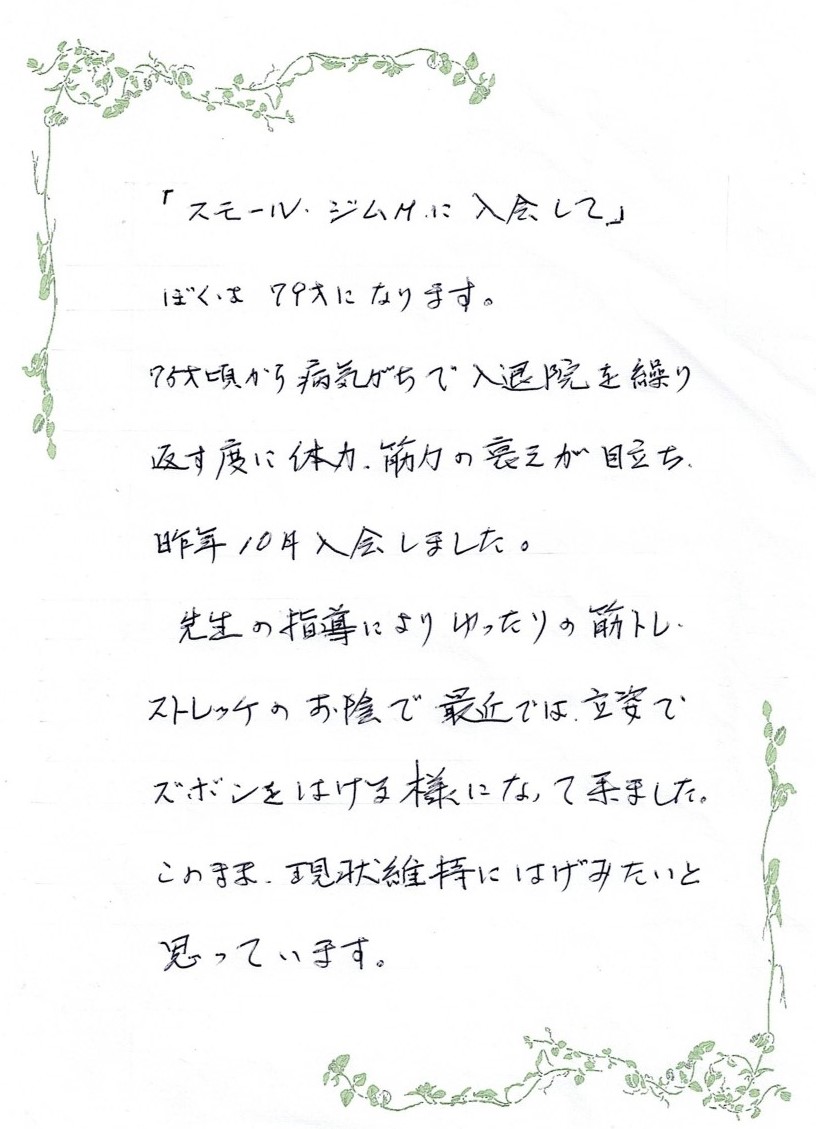 「スモール・ジムMに入会して」
ぼくは 79才になります。
75才頃から病気がちで入退院を繰り
返す度に体力、筋力の衰えが目立ち、
昨年10月入会しました。
先生の指導によりゆったりの筋トレ・
ストレッチのお陰で最近では、立姿で
ズボンをはける様になって来ました。
このまま、現状維持にはげみたいと
思っています。